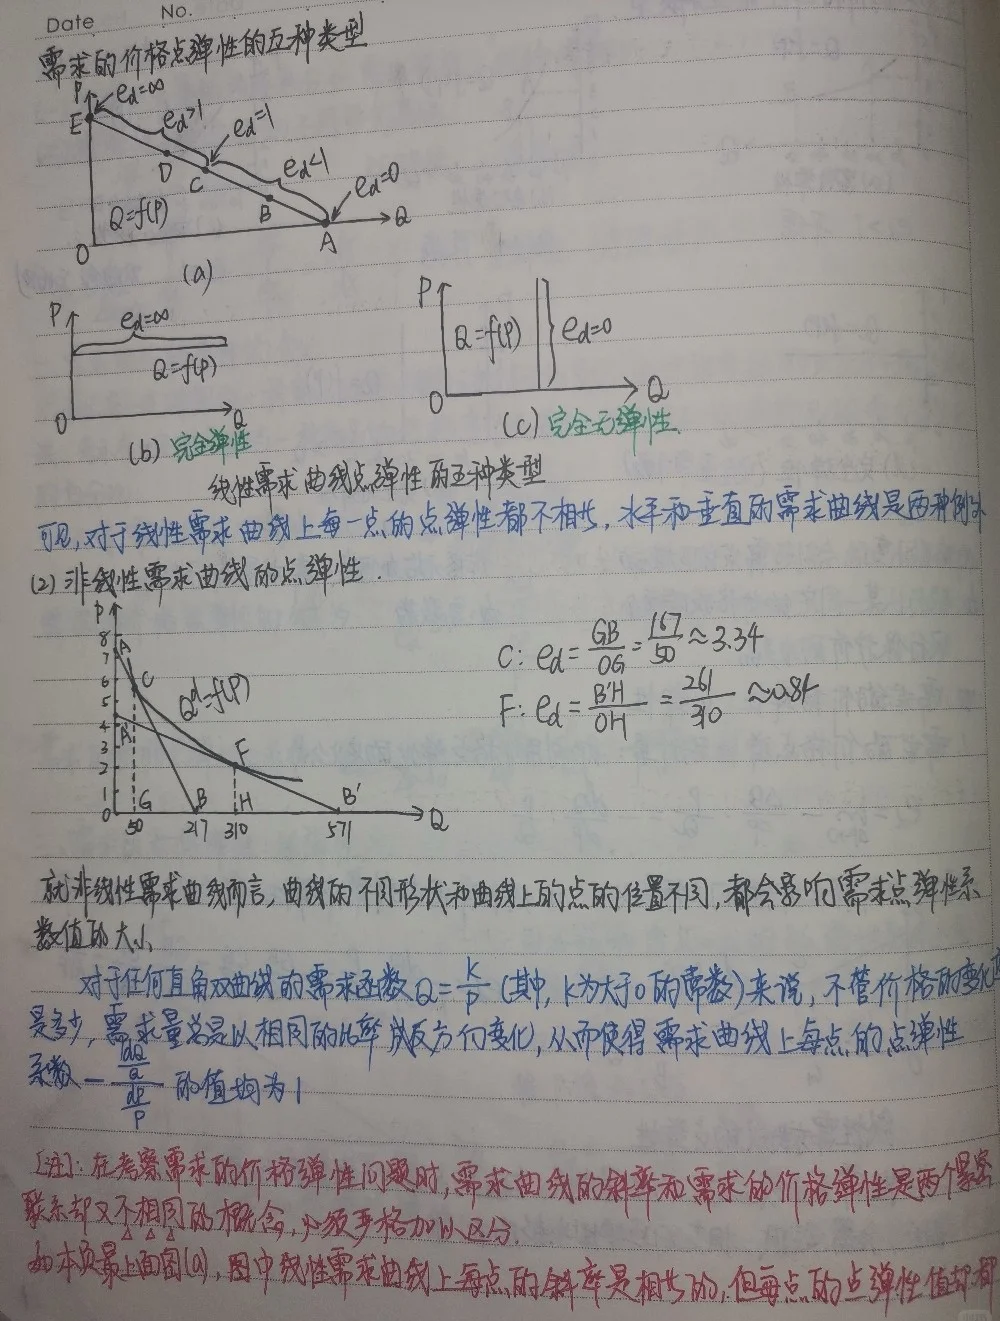 Date No.
需求的价格点弹性的五种类型
P ed=∞
E ed>1 ed=1
D C ed<1
B ed=0
Q=f(P) Q
O A
(a)
P ed=∞
Q=f(P)
O Q
(b) 完全弹性
P Q=f(P) ed=0
O Q
(c) 完全无弹性
线性需求曲线点弹性的五种类型
可见,对于线性需求曲线上每一点的点弹性都不相等,水平和垂直的需求曲线是两种例外
(2) 非线性需求曲线的点弹性.
P
8 A
7
6 C
5 Qd=f(P)
4 A'
3
2 F
1
0 G B H B' Q
50 217 310 571
C: ed=GB/OG=167/50≈3.34
F: ed=B'H/OH=261/310≈0.84
就非线性需求曲线而言,曲线的不同形状和曲线上的点的位置不同,都会影响需求点弹性系
数值的大小
对于任何直角双曲线的需求函数Q=K/P(其中,K为大于0的常数)来说,不管价格的变化
是多少,需求量总是以相同的比率成反方向变化,从而使得需求曲线上每点的点弹性
系数 -(dQ/Q)/(dP/P) 的值均为1
[注]:在考察需求的价格弹性问题时,需求曲线的斜率和需求的价格弹性是两个紧密
联系却又不相同的概念,必须严格加以区分.
如本页最上面图(a),图中线性需求曲线上每点的斜率是相等的,但每点的点弹性值却都